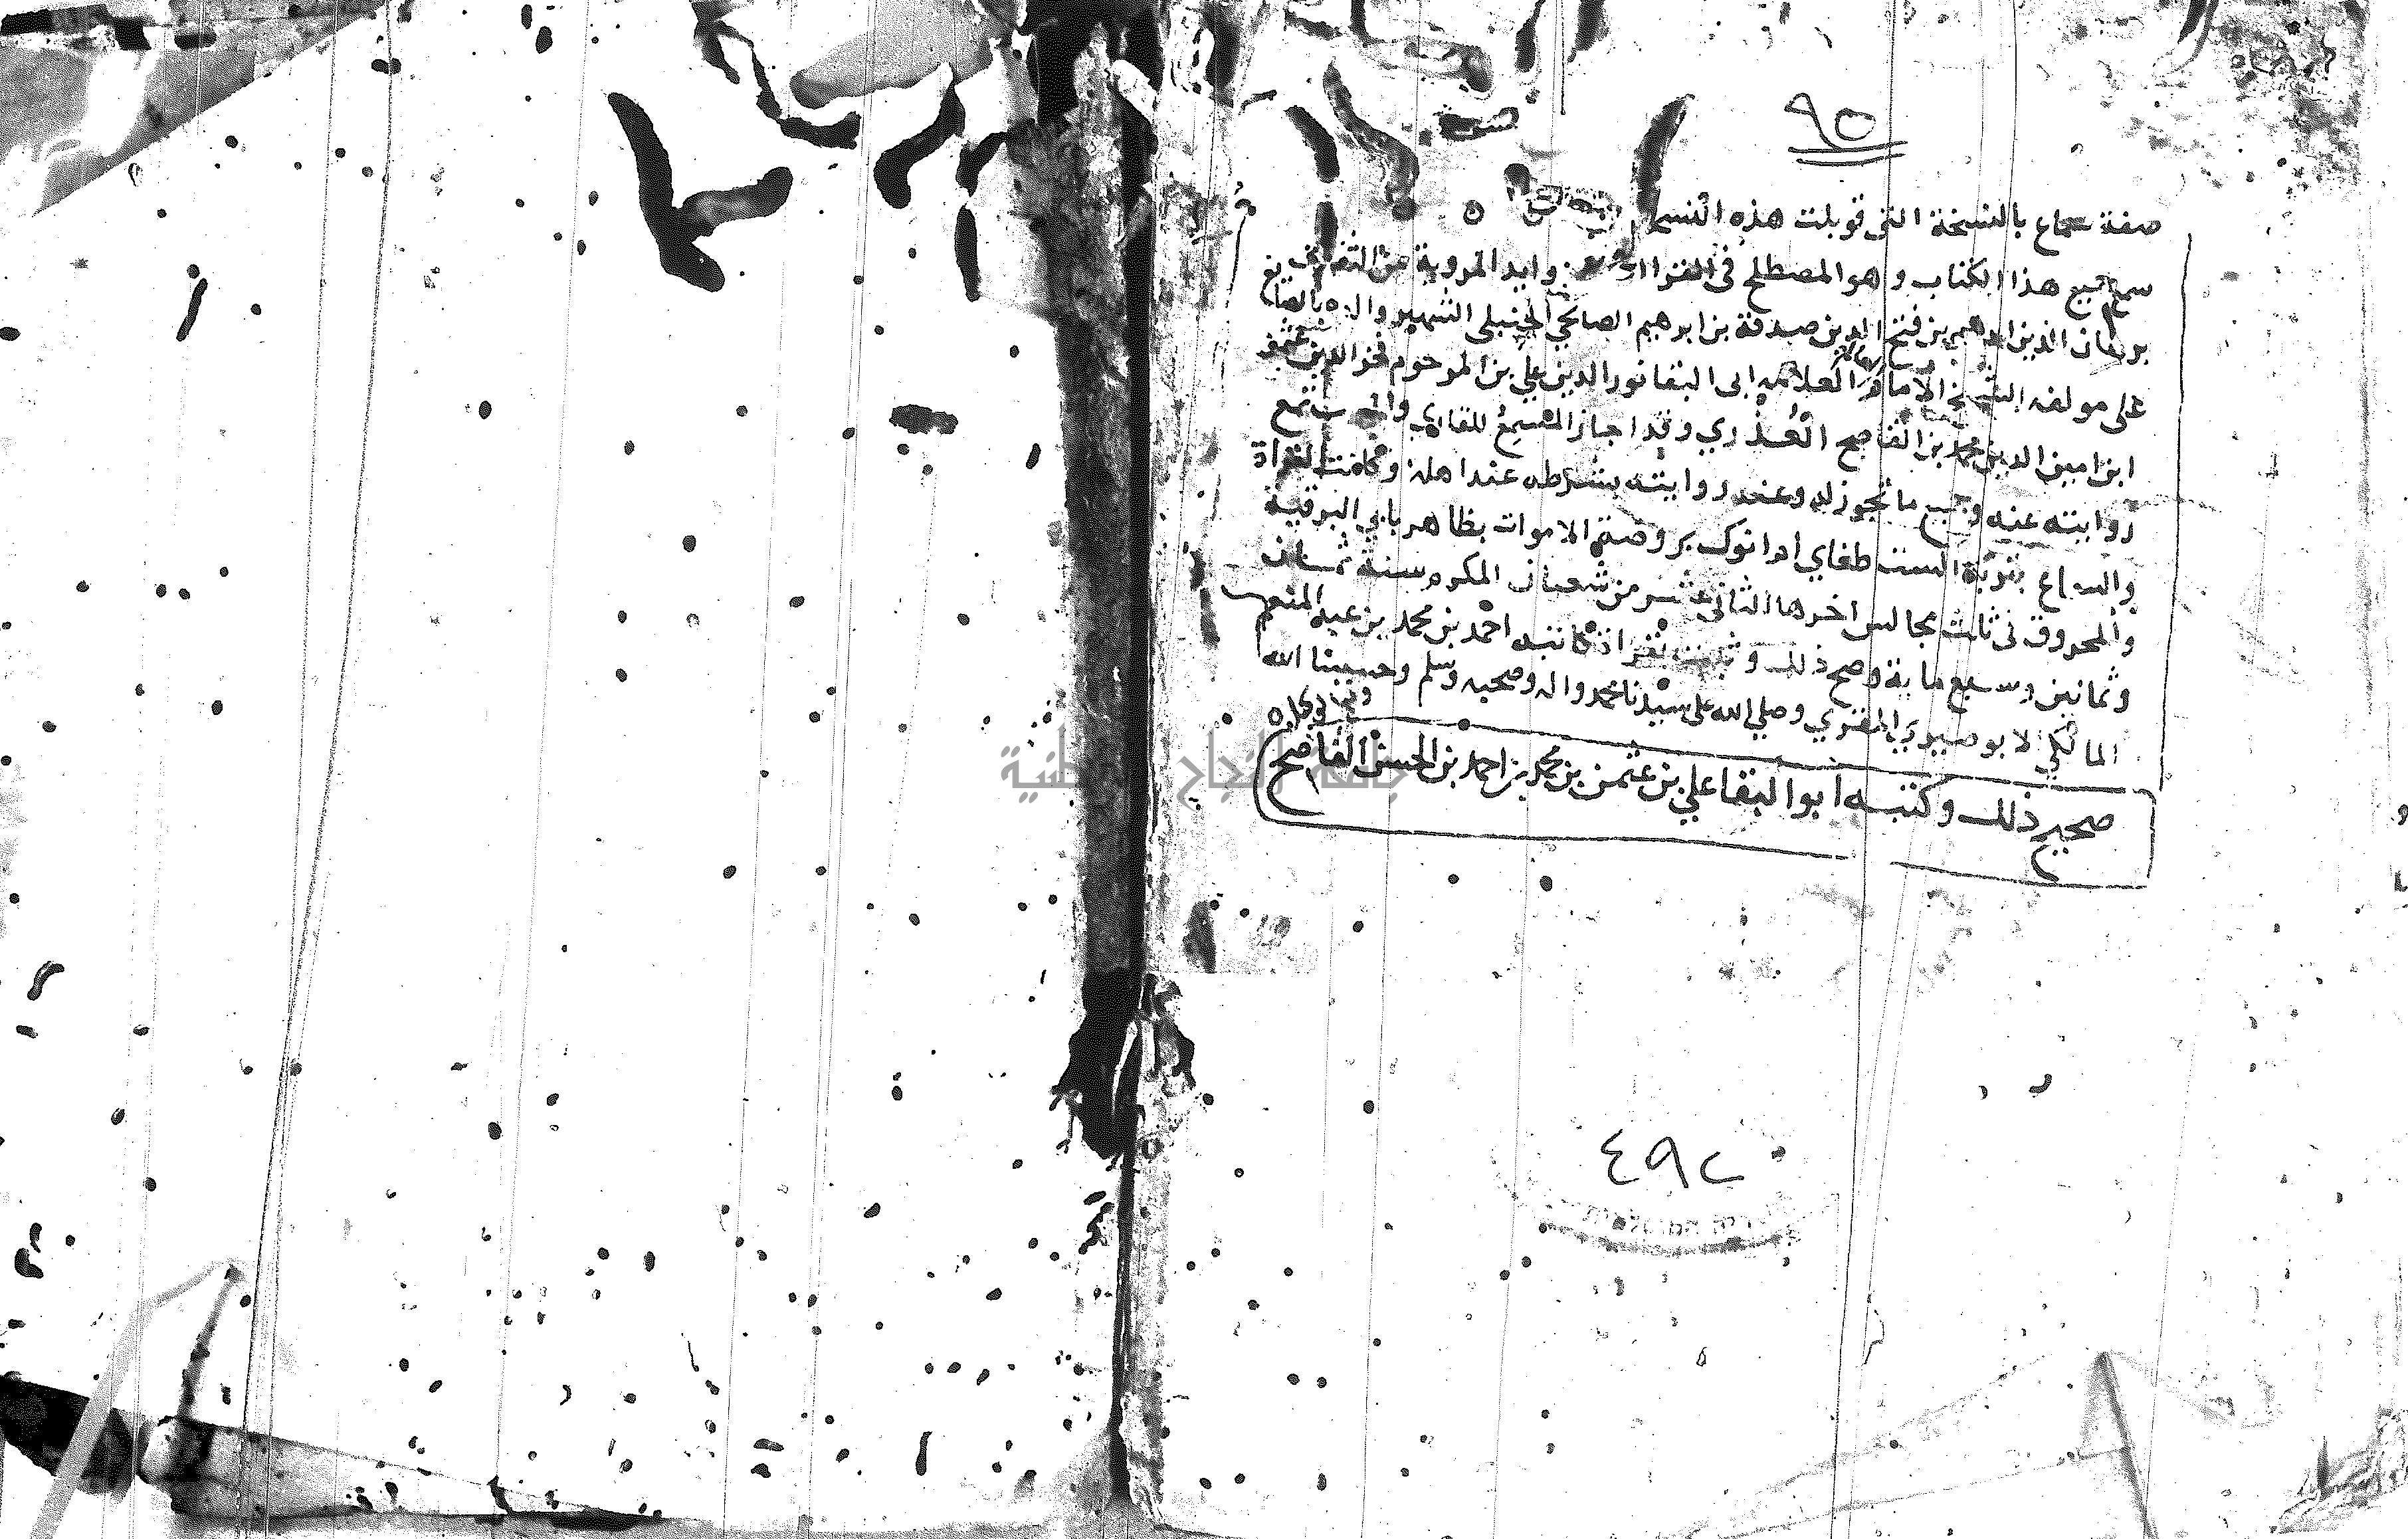 ٩٥
صفة سماع بالنسخة التى قوبلت هذه النسخ
سمع جميع هذا الكتاب وهو المصطلح فى القراات وايد المروية عن الثقات
برهان الدين ابرهيم بن فتح الدين صدقة بن ابرهيم الصالحي الحنبلى الشهير والده بالصايغ
على مولفه الشيخ الامام العلامه ابى البقا نور الدين علي بن المرحوم فخر الدين عثمن
ابن امين الدين محمد بن القاصح العُذري وقد اجاز المسمع للقاري
روايته عنه وجميع ما تجوز له وعنه روايته بشرطه عند اهله وكانت القراة
والسماع بتربة الست طغاي ام انوك بروضة الاموات بظاهر باب البرقية
والمحروق فى ثالث مجالس اخرها الثاني عشر من شعبان المكرم سنة ثمان
وثمانين وسبع ماية وصح ذلك وثبت كاتبه احمد بن محمد بن عبد المنعم
المالكي الابوصيري المقري وصلى الله على سيدنا محمد واله وصحبه وسلم وحسبنا الله
صحيح ذلك وكتبه ابو البقا علي بن عثمن بن محمد بن احمد بن الحسن القاصح
جامعة النجاح الوطنية
٤٩٢